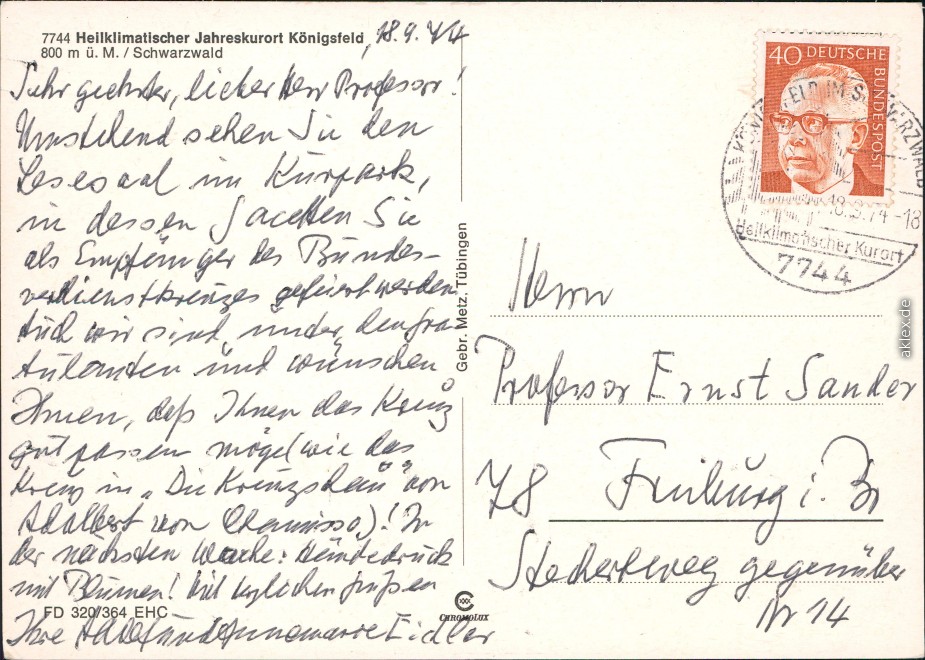 7744 Heilklimatischer Jahreskurort Königsfeld
800 m ü. M. / Schwarzwald
18.9.74
Sehr geehrter, lieber Herr Professor!
Umstehend sehen Sie den
Lesesaal im Kurpark,
in dessen Sie
als Empfänger des Bundes-
verdienstkreuzes gefeiert werden.
Auch wir sind unter den Gra-
tulanten und wünschen
Ihnen, daß Ihnen das Kreuz
gut passen möge (wie das
Kreuz in „Die Kreuzschau" von
Adalbert von Chamisso)! In
der nächsten Woche: Händedruck
mit Blumen! Mit herzlichen Grüßen
Ihre und Annemarie Eidler
FD 320/364 EHC
Gebr. Metz, Tübingen
CHROMOLUX
40 DEUTSCHE BUNDESPOST
KÖNIGSFELD IM SCHWARZWALD
18.9.74-18
Heilklimatischer Kurort
7744
Herrn
Professor Ernst Sander
78 Freiburg i. Br
gegenüber
Nr 14
aklex.de